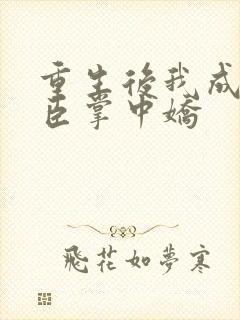 重生後我成
臣掌中嬌
飛花如夢寒